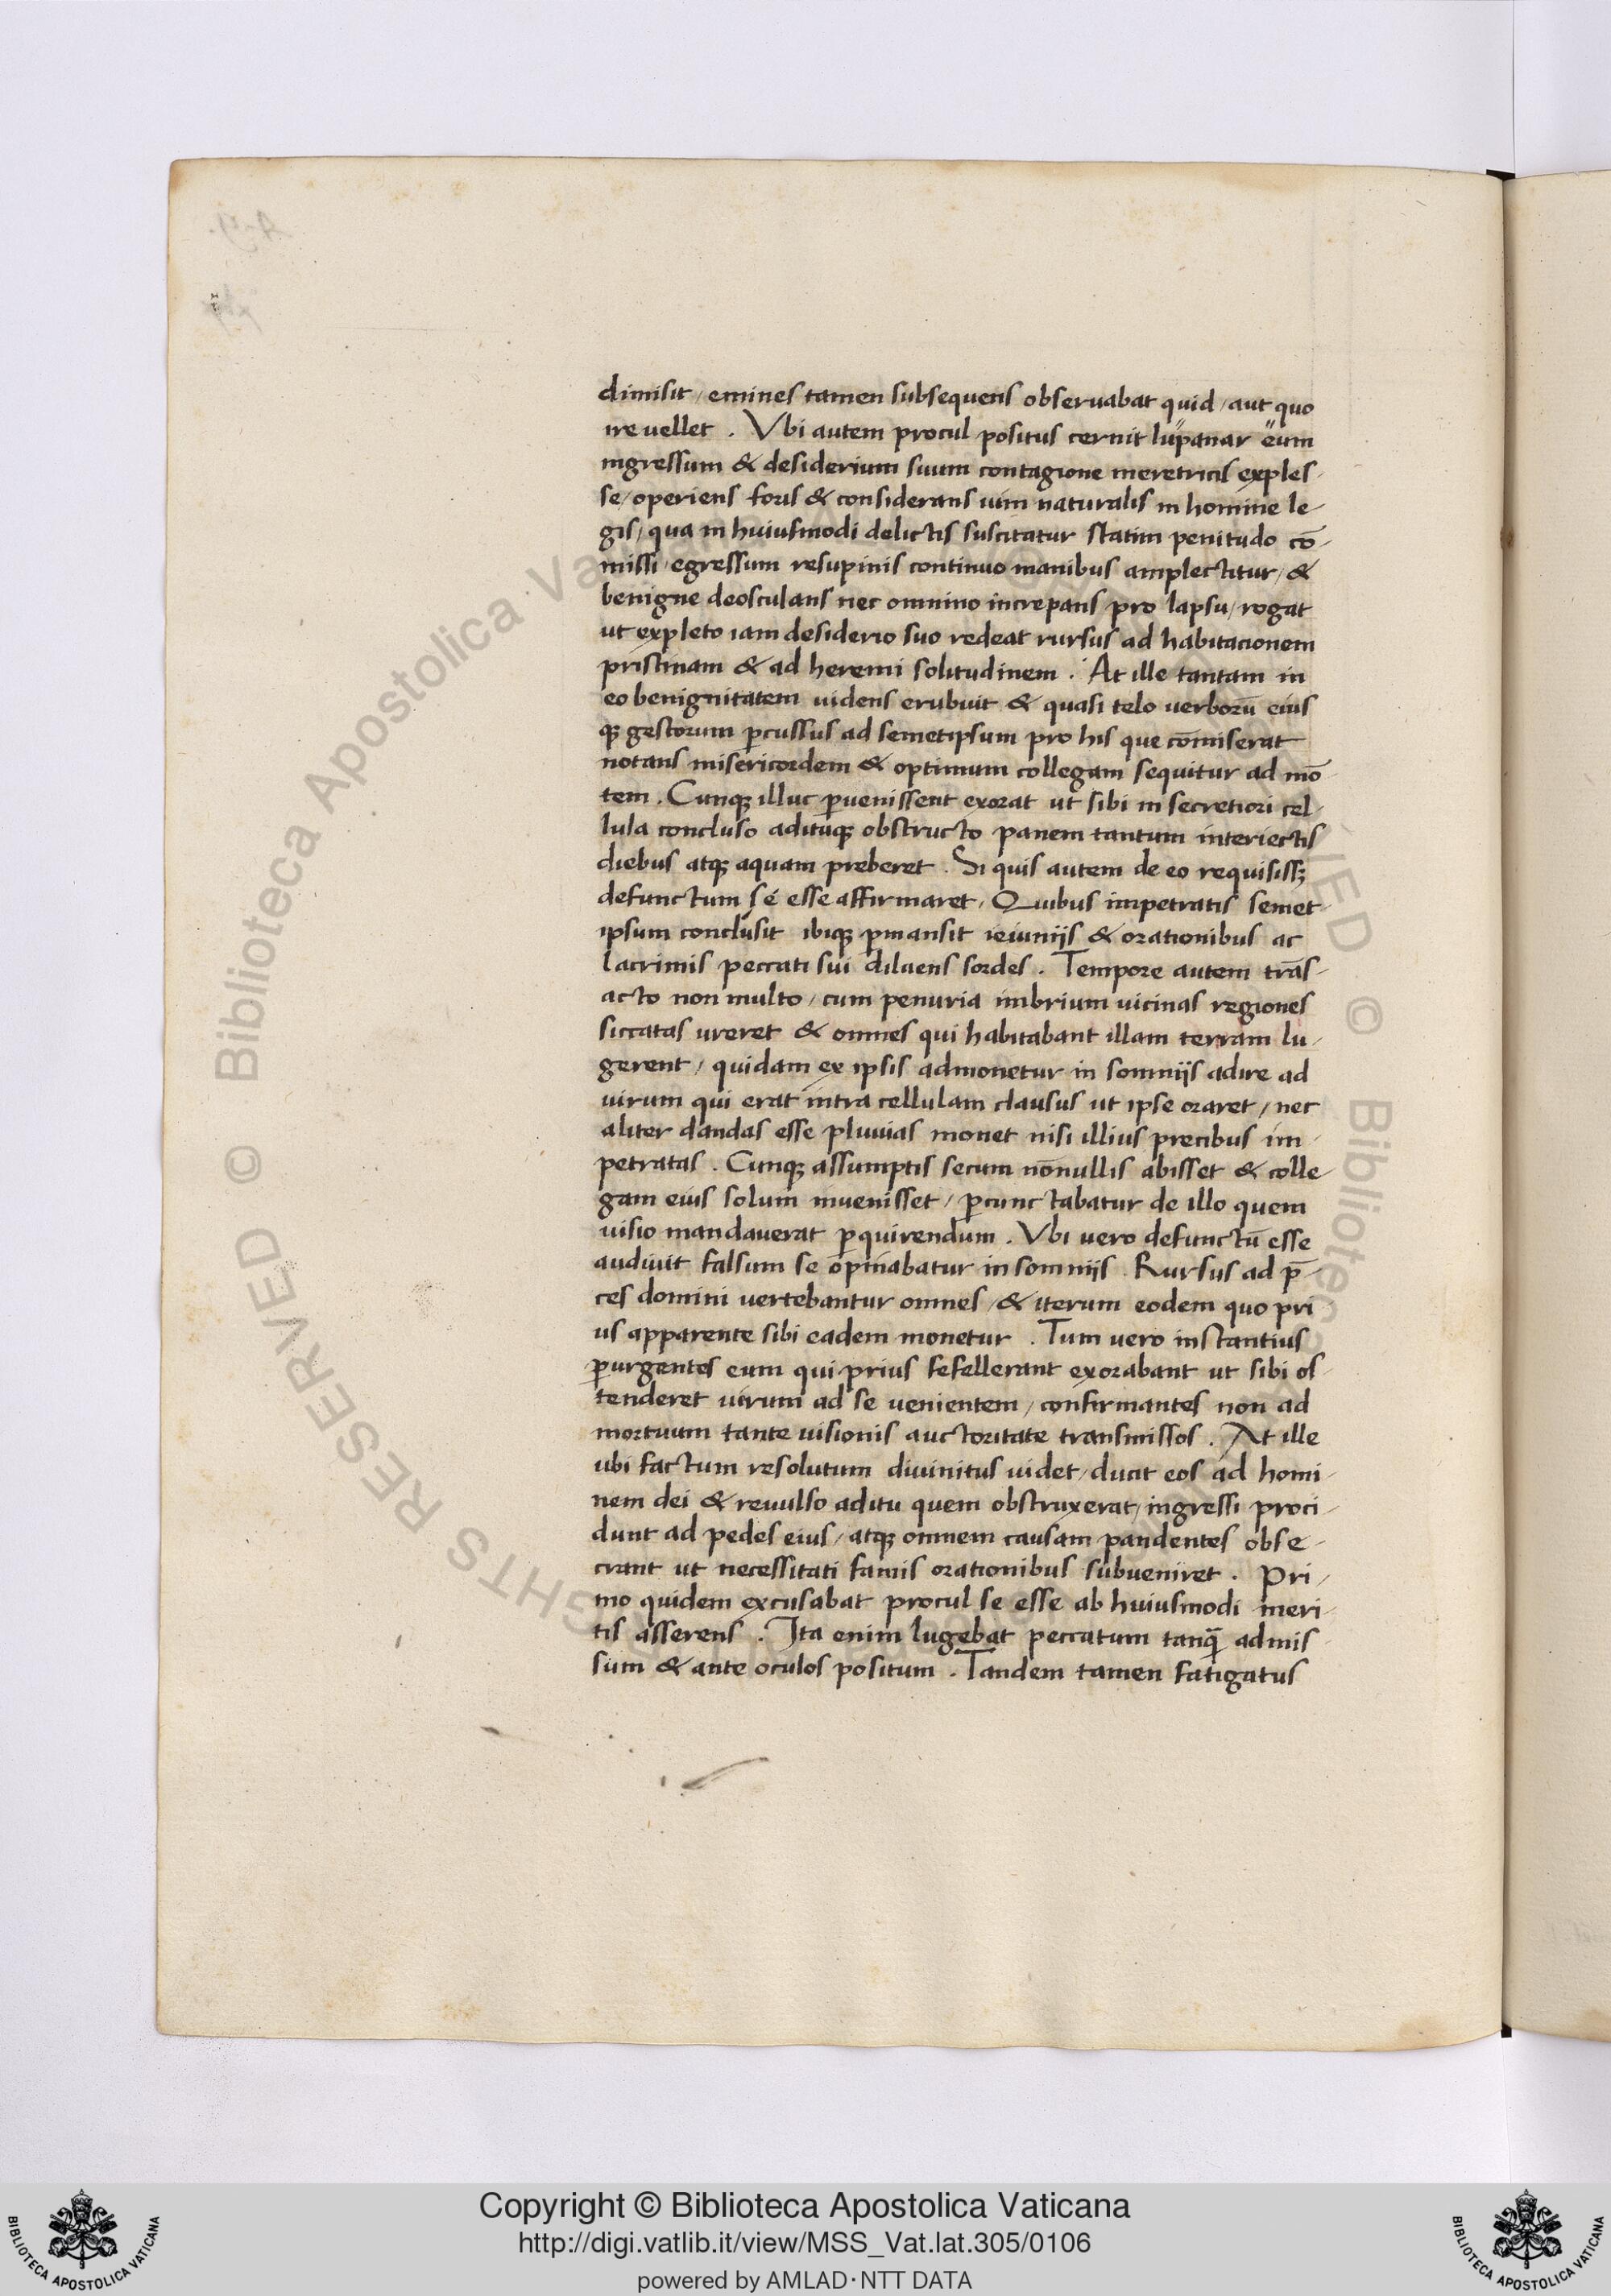 dimisit / emines tamen subsequens observabat quid / aut quo
ire vellet . Vbi autem procul positus cernit lupanar eum
ingressum & desiderium suum contagione meretricis exples-
se / operiens foris & considerans vim naturalis in homine le-
gis / qua in huiusmodi delictis suscitatur statim penitudo cō-
missi / egressum resupinis continuo manibus amplectitur / &
benigne deosculans nec omnino increpans pro lapsu / rogat
ut expleto iam desiderio suo redeat rursus ad habitacionem
pristinam & ad heremi solitudinem . At ille tantam in
eo benignitatem videns erubuit & quasi telo verborū eius
qꝫ gestorum ꝑcussus ad semetipsum pro his que cōmiserat
notans misericordem & optimum collegam sequitur ad mō
tem . Cunqꝫ illuc ꝑvenissent exorat ut sibi in secretiori cel-
lula concluso adituqꝫ obstructo panem tantum interiectis
diebus atqꝫ aquam preberet . Si quis autem de eo requisissꝫ
defunctum sé esse affirmaret / Quibus impetratis semet-
ipsum conclusit ibiqꝫ ꝑmansit ieiuniis & orationibus ac
lacrimis peccati sui diluens sordes . Tempore autem trās-
acto non multo / cum penuria imbrium vicinas regiones
siccatas ureret & omnes qui habitabant illam terram lu-
gerent / quidam ex ipsis admonetur in somniis adire ad
virum qui erat intra cellulam clausus ut ipse oraret / nec
aliter dandas esse pluvias monet nisi illius precibus im-
petratas . Cunqꝫ assumptis secum nōnullis abisset & colle-
gam eius solum invenisset / ꝑcunctabatur de illo quem
visio mandaverat ꝑquirendum . Vbi vero defunctū esse
audivit falsum se opinabatur in somniis . Rursus ad p̄-
ces domini vertebantur omnes / & iterum eodem quo pri
us apparente sibi eadem monetur . Tum vero instantius
ꝑurgentes eum qui prius fefellerant exorabant ut sibi os-
tenderet virum ad se venientem / confirmantes non ad
mortuum tante visionis auctoritate transmissos . At ille
ubi factum resolutum divinitus videt / ducit eos ad homi-
nem dei & revulso aditu quem obstruxerat / ingressi proci-
dunt ad pedes eius / atqꝫ omnem causam pandentes obse-
crant ut necessitati famis orationibus subveniret . Pri-
mo quidem excusabat procul se esse ab huiusmodi meri-
tis asserens . Ita enim lugebat peccatum tanqꝫ̄ admis-
sum & ante oculos positum . Tandem tamen fatigatus
© Biblioteca Apostolica Vaticana
RIGHTS RESERVED
Copyright © Biblioteca Apostolica Vaticana
http://digi.vatlib.it/view/MSS_Vat.lat.305/0106
powered by AMLAD·NTT DATA
BIBLIOTECA APOSTOLICA VATICANA
BIBLIOTECA APOSTOLICA VATICANA